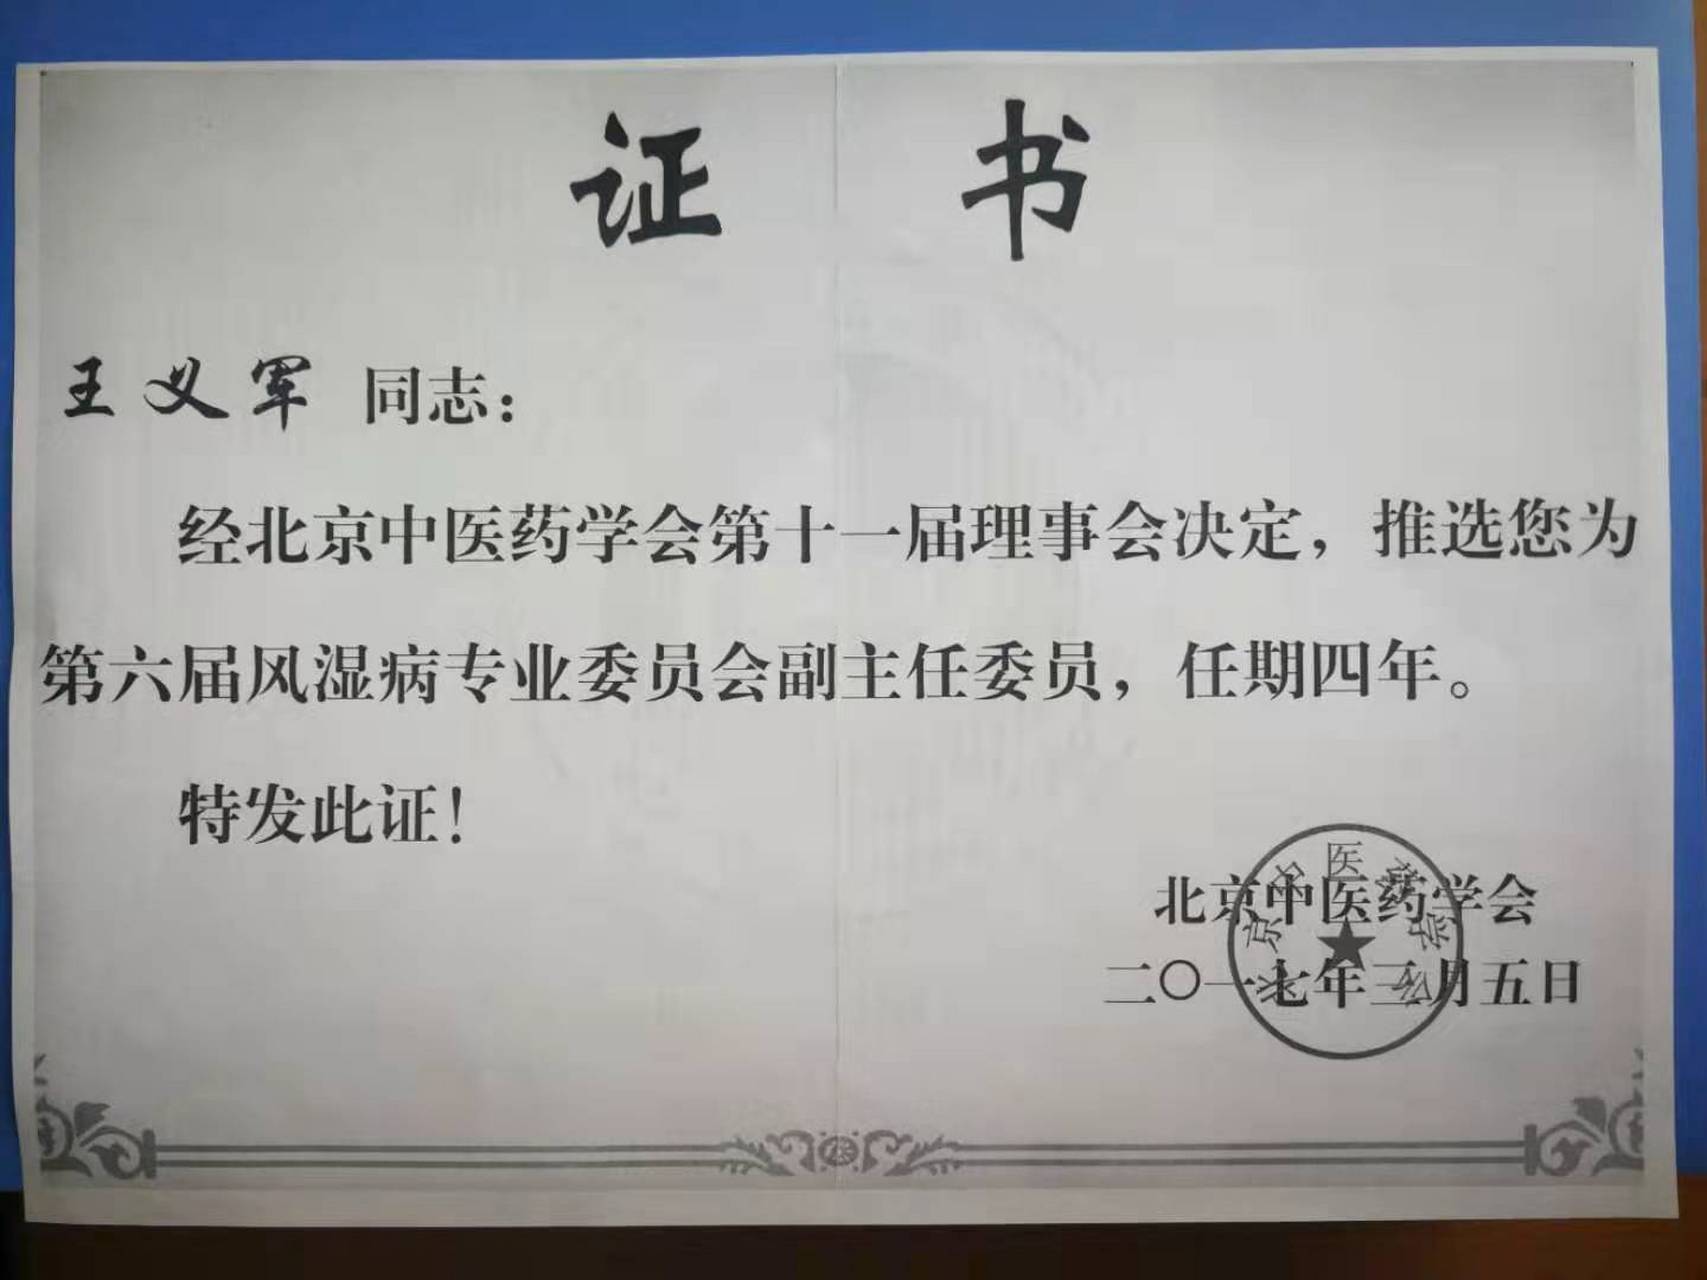 证 书
王义军 同志：
经北京中医药学会第十一届理事会决定，推选您为
第六届风湿病专业委员会副主任委员，任期四年。
特发此证！
北京中医药学会
二〇一七年三月五日
北京中医药学会